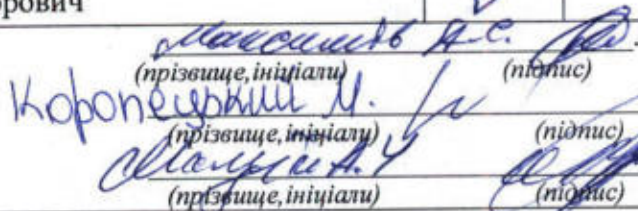 орович
Максимів А.С.
(прізвище, ініціали) (підпис)
Коропецький М.
(прізвище, ініціали) (підпис)
(прізвище, ініціали) (підпис)